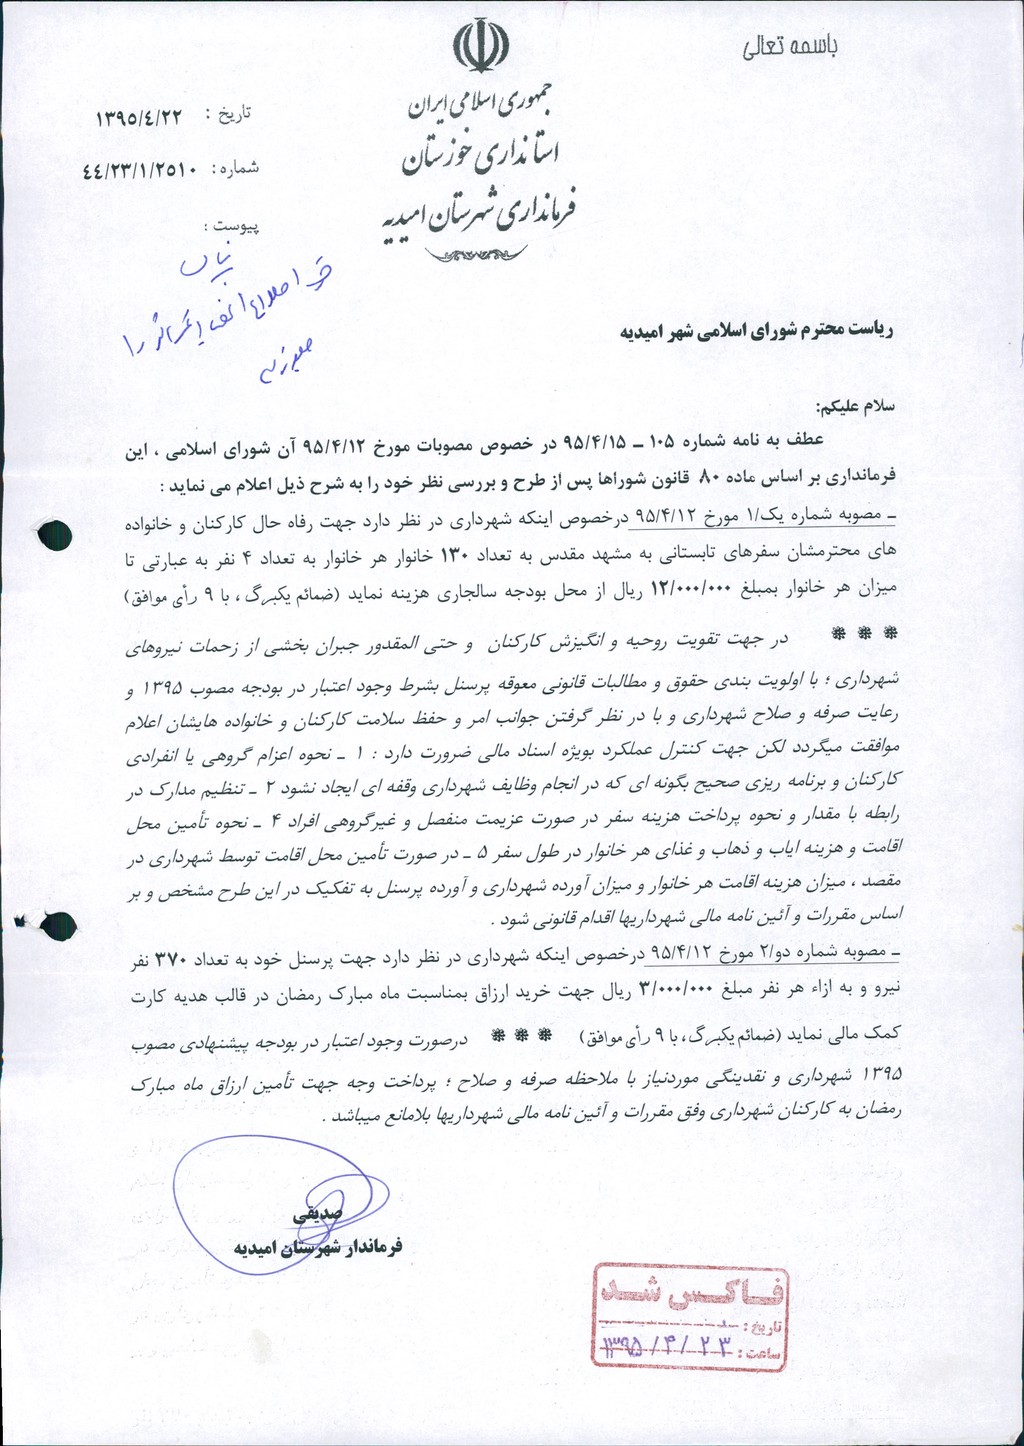 باسمه تعالی
جمهوری اسلامی ایران
استانداری خوزستان
فرمانداری شهرستان امیدیه
تاریخ : ۱۳۹۵/٤/۲۲
شماره : ٤٤/۲۳/۱/۲۵۱۰
پیوست :
ریاست محترم شورای اسلامی شهر امیدیه
سلام علیکم:
عطف به نامه شماره ۱۰۵ ـ ۹۵/۴/۱۵ در خصوص مصوبات مورخ ۹۵/۴/۱۲ آن شورای اسلامی ، این
فرمانداری بر اساس ماده ۸۰ قانون شوراها پس از طرح و بررسی نظر خود را به شرح ذیل اعلام می نماید :
ـ مصوبه شماره یک/۱ مورخ ۹۵/۴/۱۲ درخصوص اینکه شهرداری در نظر دارد جهت رفاه حال کارکنان و خانواده
های محترمشان سفرهای تابستانی به مشهد مقدس به تعداد ۱۳۰ خانوار هر خانوار به تعداد ۴ نفر به عبارتی تا
میزان هر خانوار بمبلغ ۱۲/۰۰۰/۰۰۰ ریال از محل بودجه سالجاری هزینه نماید (ضمائم یکبرگ ، با ۹ رأی موافق)
❋ ❋ ❋ در جهت تقویت روحیه و انگیزش کارکنان و حتی المقدور جبران بخشی از زحمات نیروهای
شهرداری ؛ با اولویت بندی حقوق و مطالبات قانونی معوقه پرسنل بشرط وجود اعتبار در بودجه مصوب ۱۳۹۵ و
رعایت صرفه و صلاح شهرداری و با در نظر گرفتن جوانب امر و حفظ سلامت کارکنان و خانواده هایشان اعلام
موافقت میگردد لکن جهت کنترل عملکرد بویژه اسناد مالی ضرورت دارد : ۱ ـ نحوه اعزام گروهی یا انفرادی
کارکنان و برنامه ریزی صحیح بگونه ای که در انجام وظایف شهرداری وقفه ای ایجاد نشود ۲ ـ تنظیم مدارک در
رابطه با مقدار و نحوه پرداخت هزینه سفر در صورت عزیمت منفصل و غیرگروهی افراد ۴ ـ نحوه تأمین محل
اقامت و هزینه ایاب و ذهاب و غذای هر خانوار در طول سفر ۵ ـ در صورت تأمین محل اقامت توسط شهرداری در
مقصد ، میزان هزینه اقامت هر خانوار و میزان آورده شهرداری و آورده پرسنل به تفکیک در این طرح مشخص و بر
اساس مقررات و آئین نامه مالی شهرداریها اقدام قانونی شود .
ـ مصوبه شماره دو/۲ مورخ ۹۵/۴/۱۲ درخصوص اینکه شهرداری در نظر دارد جهت پرسنل خود به تعداد ۳۷۰ نفر
نیرو و به ازاء هر نفر مبلغ ۳/۰۰۰/۰۰۰ ریال جهت خرید ارزاق بمناسبت ماه مبارک رمضان در قالب هدیه کارت
کمک مالی نماید (ضمائم یکبرگ ، با ۹ رأی موافق) ❋ ❋ ❋ درصورت وجود اعتبار در بودجه پیشنهادی مصوب
۱۳۹۵ شهرداری و نقدینگی موردنیاز با ملاحظه صرفه و صلاح ؛ پرداخت وجه جهت تأمین ارزاق ماه مبارک
رمضان به کارکنان شهرداری وفق مقررات و آئین نامه مالی شهرداریها بلامانع میباشد .
صدیقی
فرماندار شهرستان امیدیه
فاکس شد
تاریخ :
ساعت : ۱۳۹۵/۴/۲۳